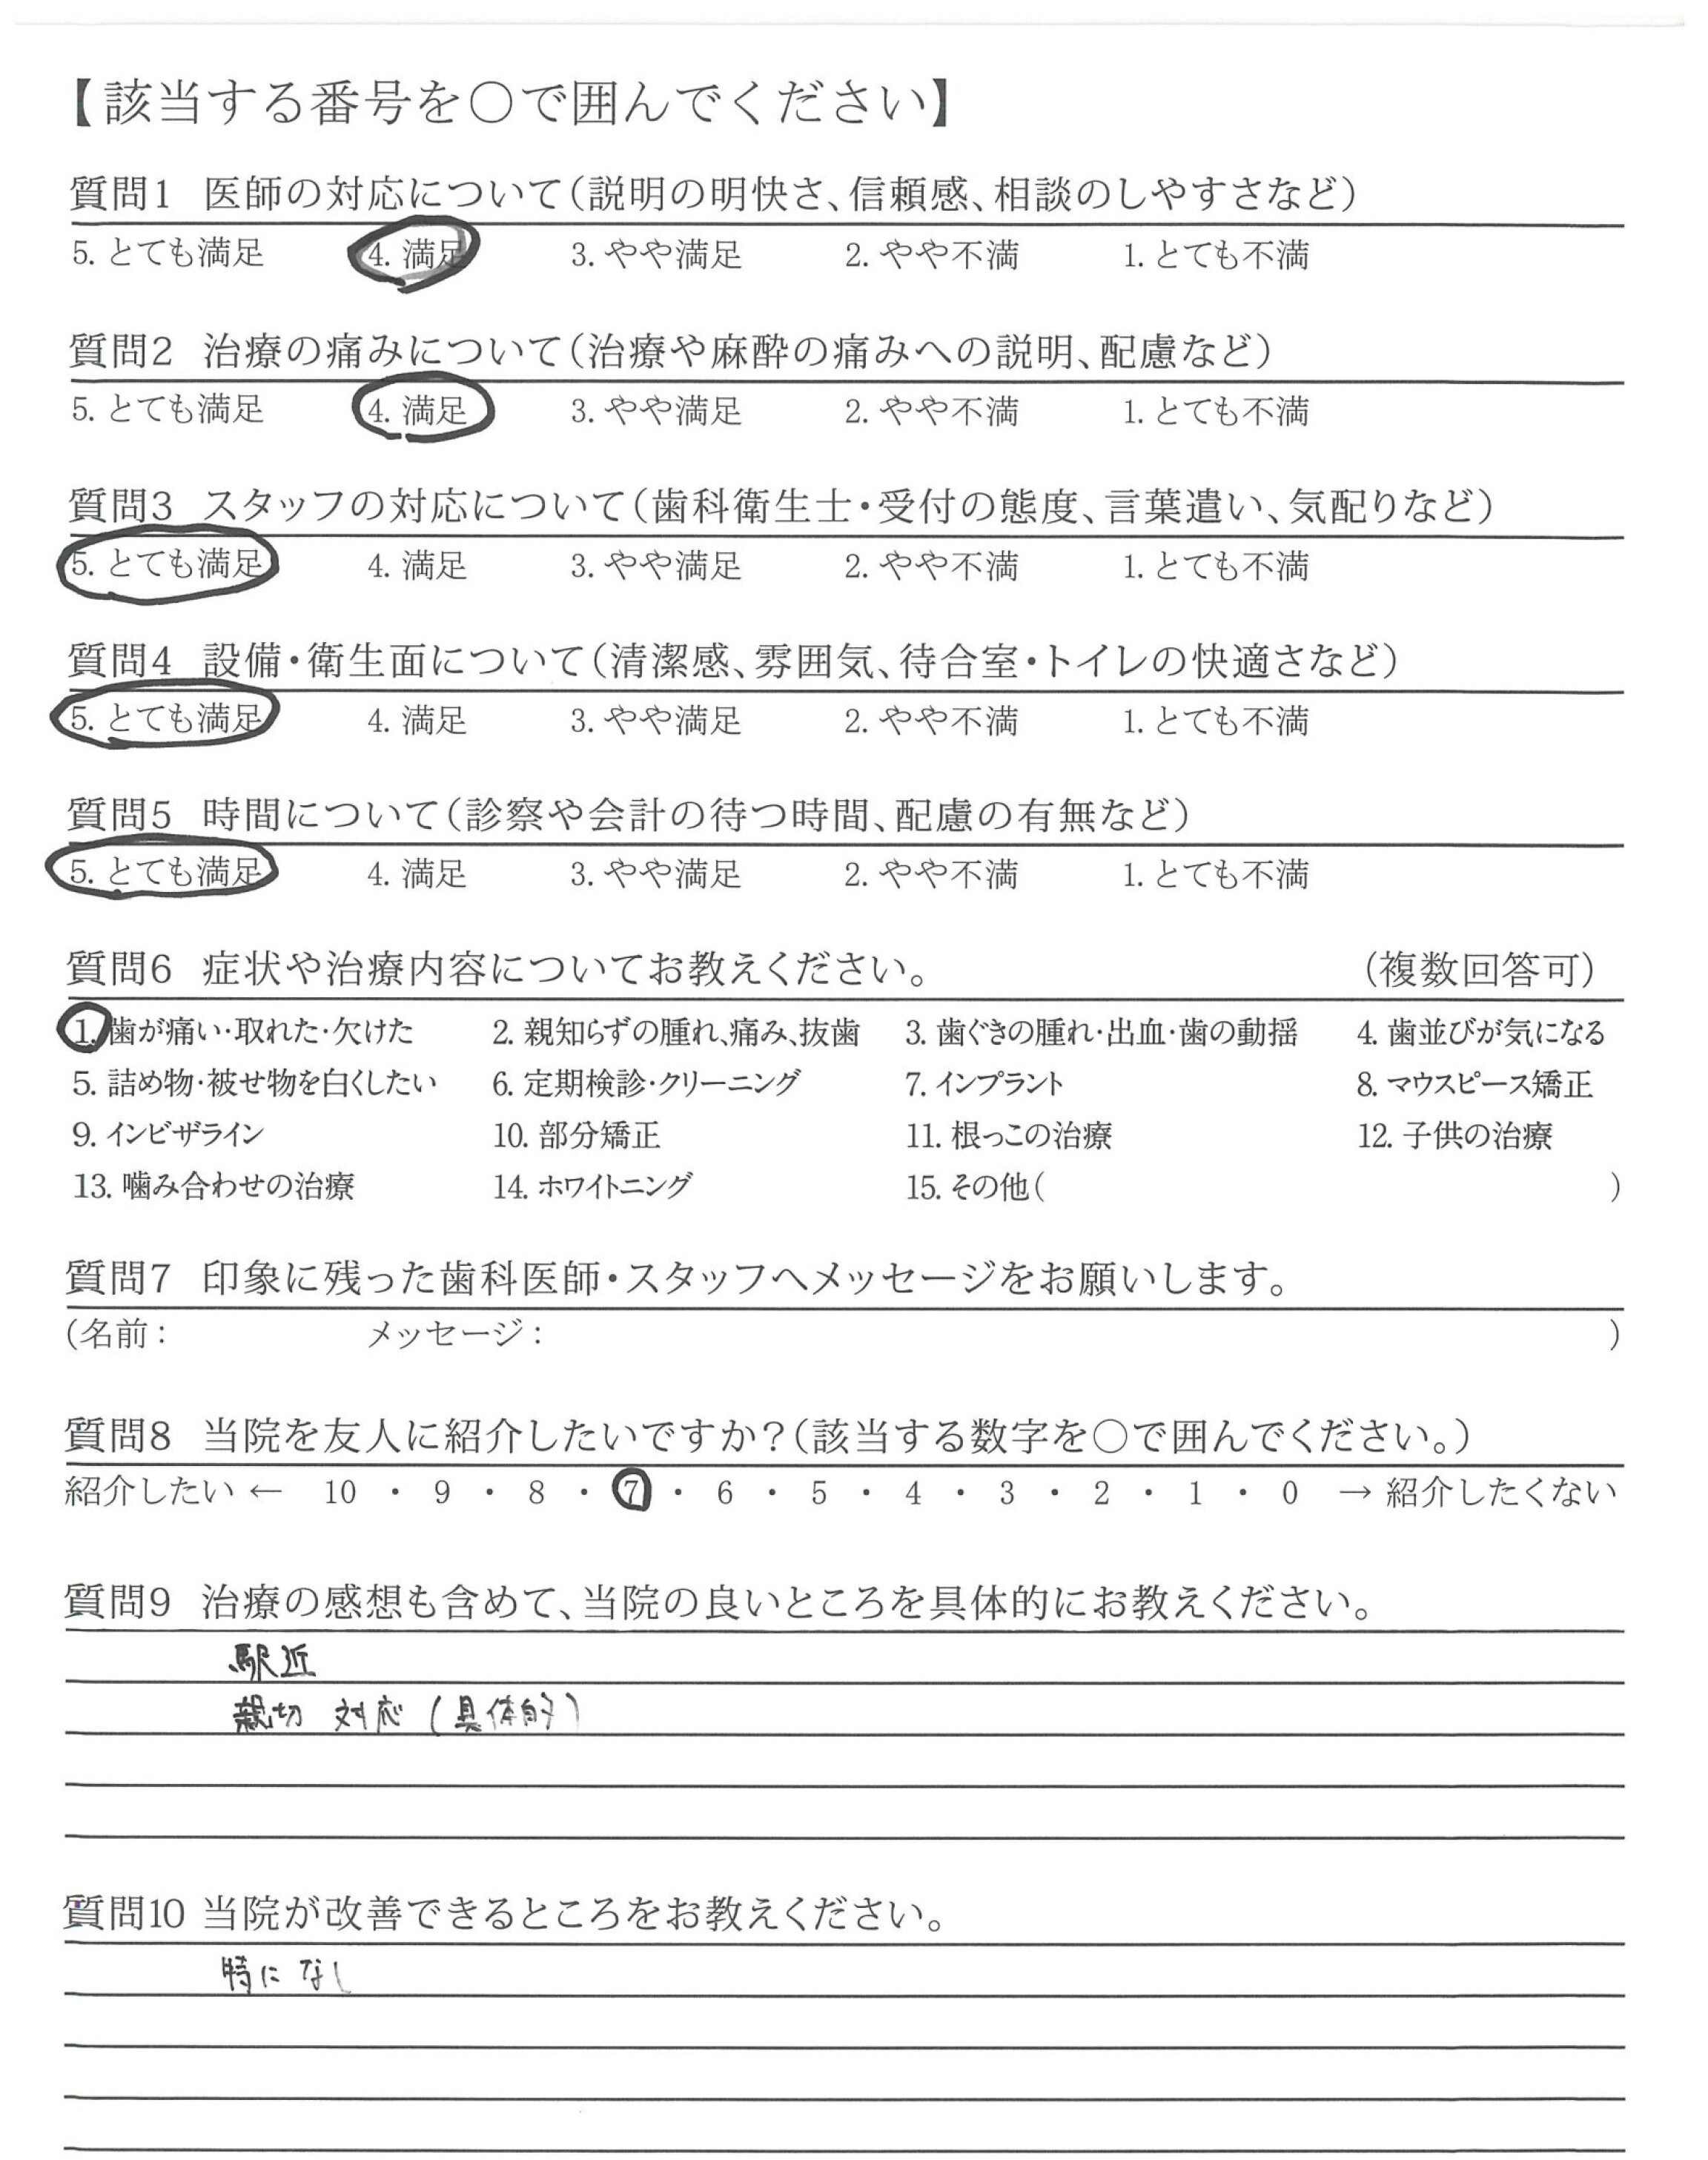 【該当する番号を〇で囲んでください】
質問1 医師の対応について(説明の明快さ、信頼感、相談のしやすさなど)
5. とても満足 4. 満足 3. やや満足 2. やや不満 1. とても不満
質問2 治療の痛みについて(治療や麻酔の痛みへの説明、配慮など)
5. とても満足 4. 満足 3. やや満足 2. やや不満 1. とても不満
質問3 スタッフの対応について(歯科衛生士・受付の態度、言葉遣い、気配りなど)
5. とても満足 4. 満足 3. やや満足 2. やや不満 1. とても不満
質問4 設備・衛生面について(清潔感、雰囲気、待合室・トイレの快適さなど)
5. とても満足 4. 満足 3. やや満足 2. やや不満 1. とても不満
質問5 時間について(診察や会計の待つ時間、配慮の有無など)
5. とても満足 4. 満足 3. やや満足 2. やや不満 1. とても不満
質問6 症状や治療内容についてお教えください。 (複数回答可)
1. 歯が痛い・取れた・欠けた 2. 親知らずの腫れ、痛み、抜歯 3. 歯ぐきの腫れ・出血・歯の動揺 4. 歯並びが気になる
5. 詰め物・被せ物を白くしたい 6. 定期検診・クリーニング 7. インプラント 8. マウスピース矯正
9. インビザライン 10. 部分矯正 11. 根っこの治療 12. 子供の治療
13. 噛み合わせの治療 14. ホワイトニング 15. その他( )
質問7 印象に残った歯科医師・スタッフへメッセージをお願いします。
(名前: メッセージ: )
質問8 当院を友人に紹介したいですか?(該当する数字を〇で囲んでください。)
紹介したい ← 10 ・ 9 ・ 8 ・ 7 ・ 6 ・ 5 ・ 4 ・ 3 ・ 2 ・ 1 ・ 0 → 紹介したくない
質問9 治療の感想も含めて、当院の良いところを具体的にお教えください。
駅近
親切 対応 (具体的)
質問10 当院が改善できるところをお教えください。
特になし